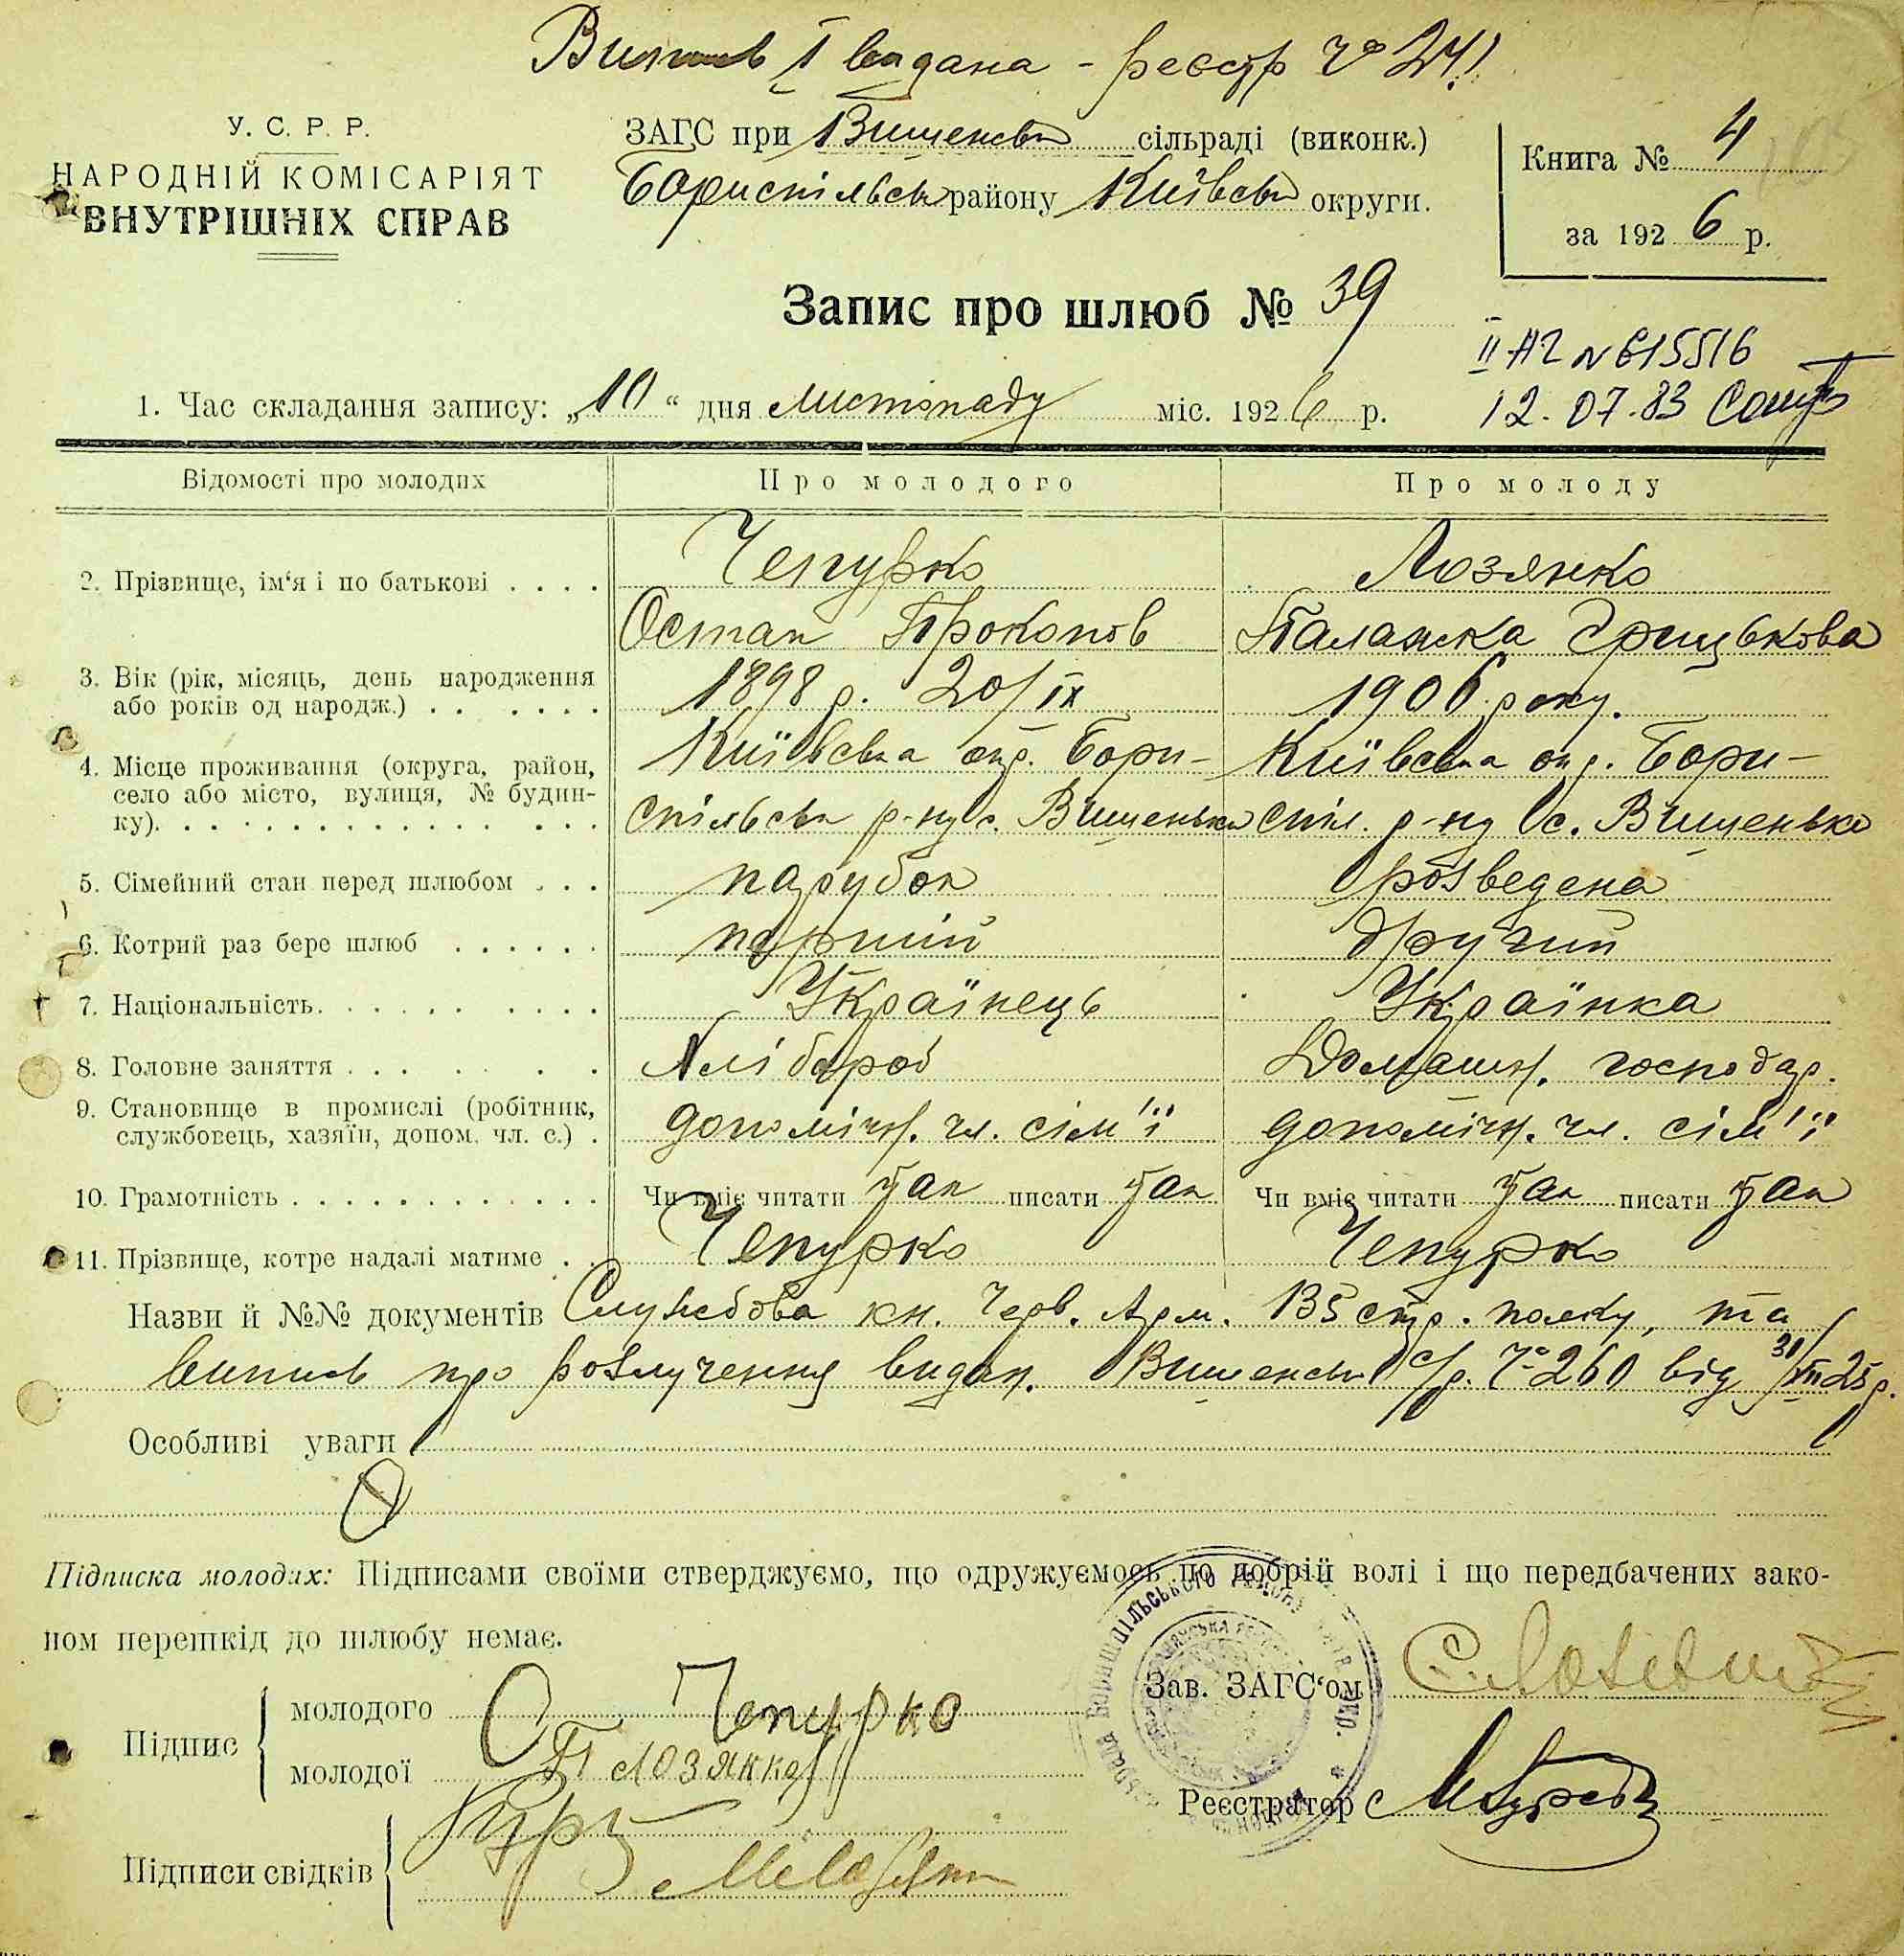 Випись I видана - реєстр № 241
У. С. Р. Р.
НАРОДНІЙ КОМІСАРІЯТ
ВНУТРІШНІХ СПРАВ
ЗАГС при Вишенськ сільраді (виконк.)
Бориспільськ району Київськ округи.
Книга № 4
за 1926 р.
Запис про шлюб № 39
II АЧ № 615516
12.07.83
1. Час складання запису: „10“ дня листопаду міс. 1926 р.
Відомості про молодих Про молодого Про молоду
2. Прізвище, ім‘я і по батькові . . . . Чепурко Лозянко
Остап Прокопов Палажка Грицькова
3. Вік (рік, місяць, день народження
або років од народж.) . . . . . . 1898 р. 20/IX 1906 року.
4. Місце проживання (округа, район,
село або місто, вулиця, № будин-
ку). Київська окр. Бори- Київська окр. Бори-
спільськ р-ну с. Вишеньки спіл. р-ну с. Вишеньки
5. Сімейний стан перед шлюбом . . . парубок розведена
6. Котрий раз бере шлюб . . . . . . перший другий
7. Національність. . . . . . . . . . Українець Українка
8. Головне заняття . . . . . . . Хлібороб Домашн. господар.
9. Становище в промислі (робітник,
службовець, хазяїн, допом. чл. с.) . допомічн. чл. сім'ї допомічн. чл. сім'ї
10. Грамотність . . . . . . . . . . . . Чи вміє читати так писати так Чи вміє читати так писати так
11. Прізвище, котре надалі матиме . . Чепурко Чепурко
Назви й №№ документів Службова кн. Черв. Арм. 135 стр. полку, та
випись про розлучення видан. Вишенськ с/р. № 260 від 31/XII 25 р.
Особливі уваги
Підписка молодих: Підписами своїми стверджуємо, що одружуємось по добрій волі і що передбачених зако-
ном перешкід до шлюбу немає.
Підпис
молодого О Чепурко
молодої П Лозянко
Зав. ЗАГС‘ом
Реєстратор
Підписи свідків